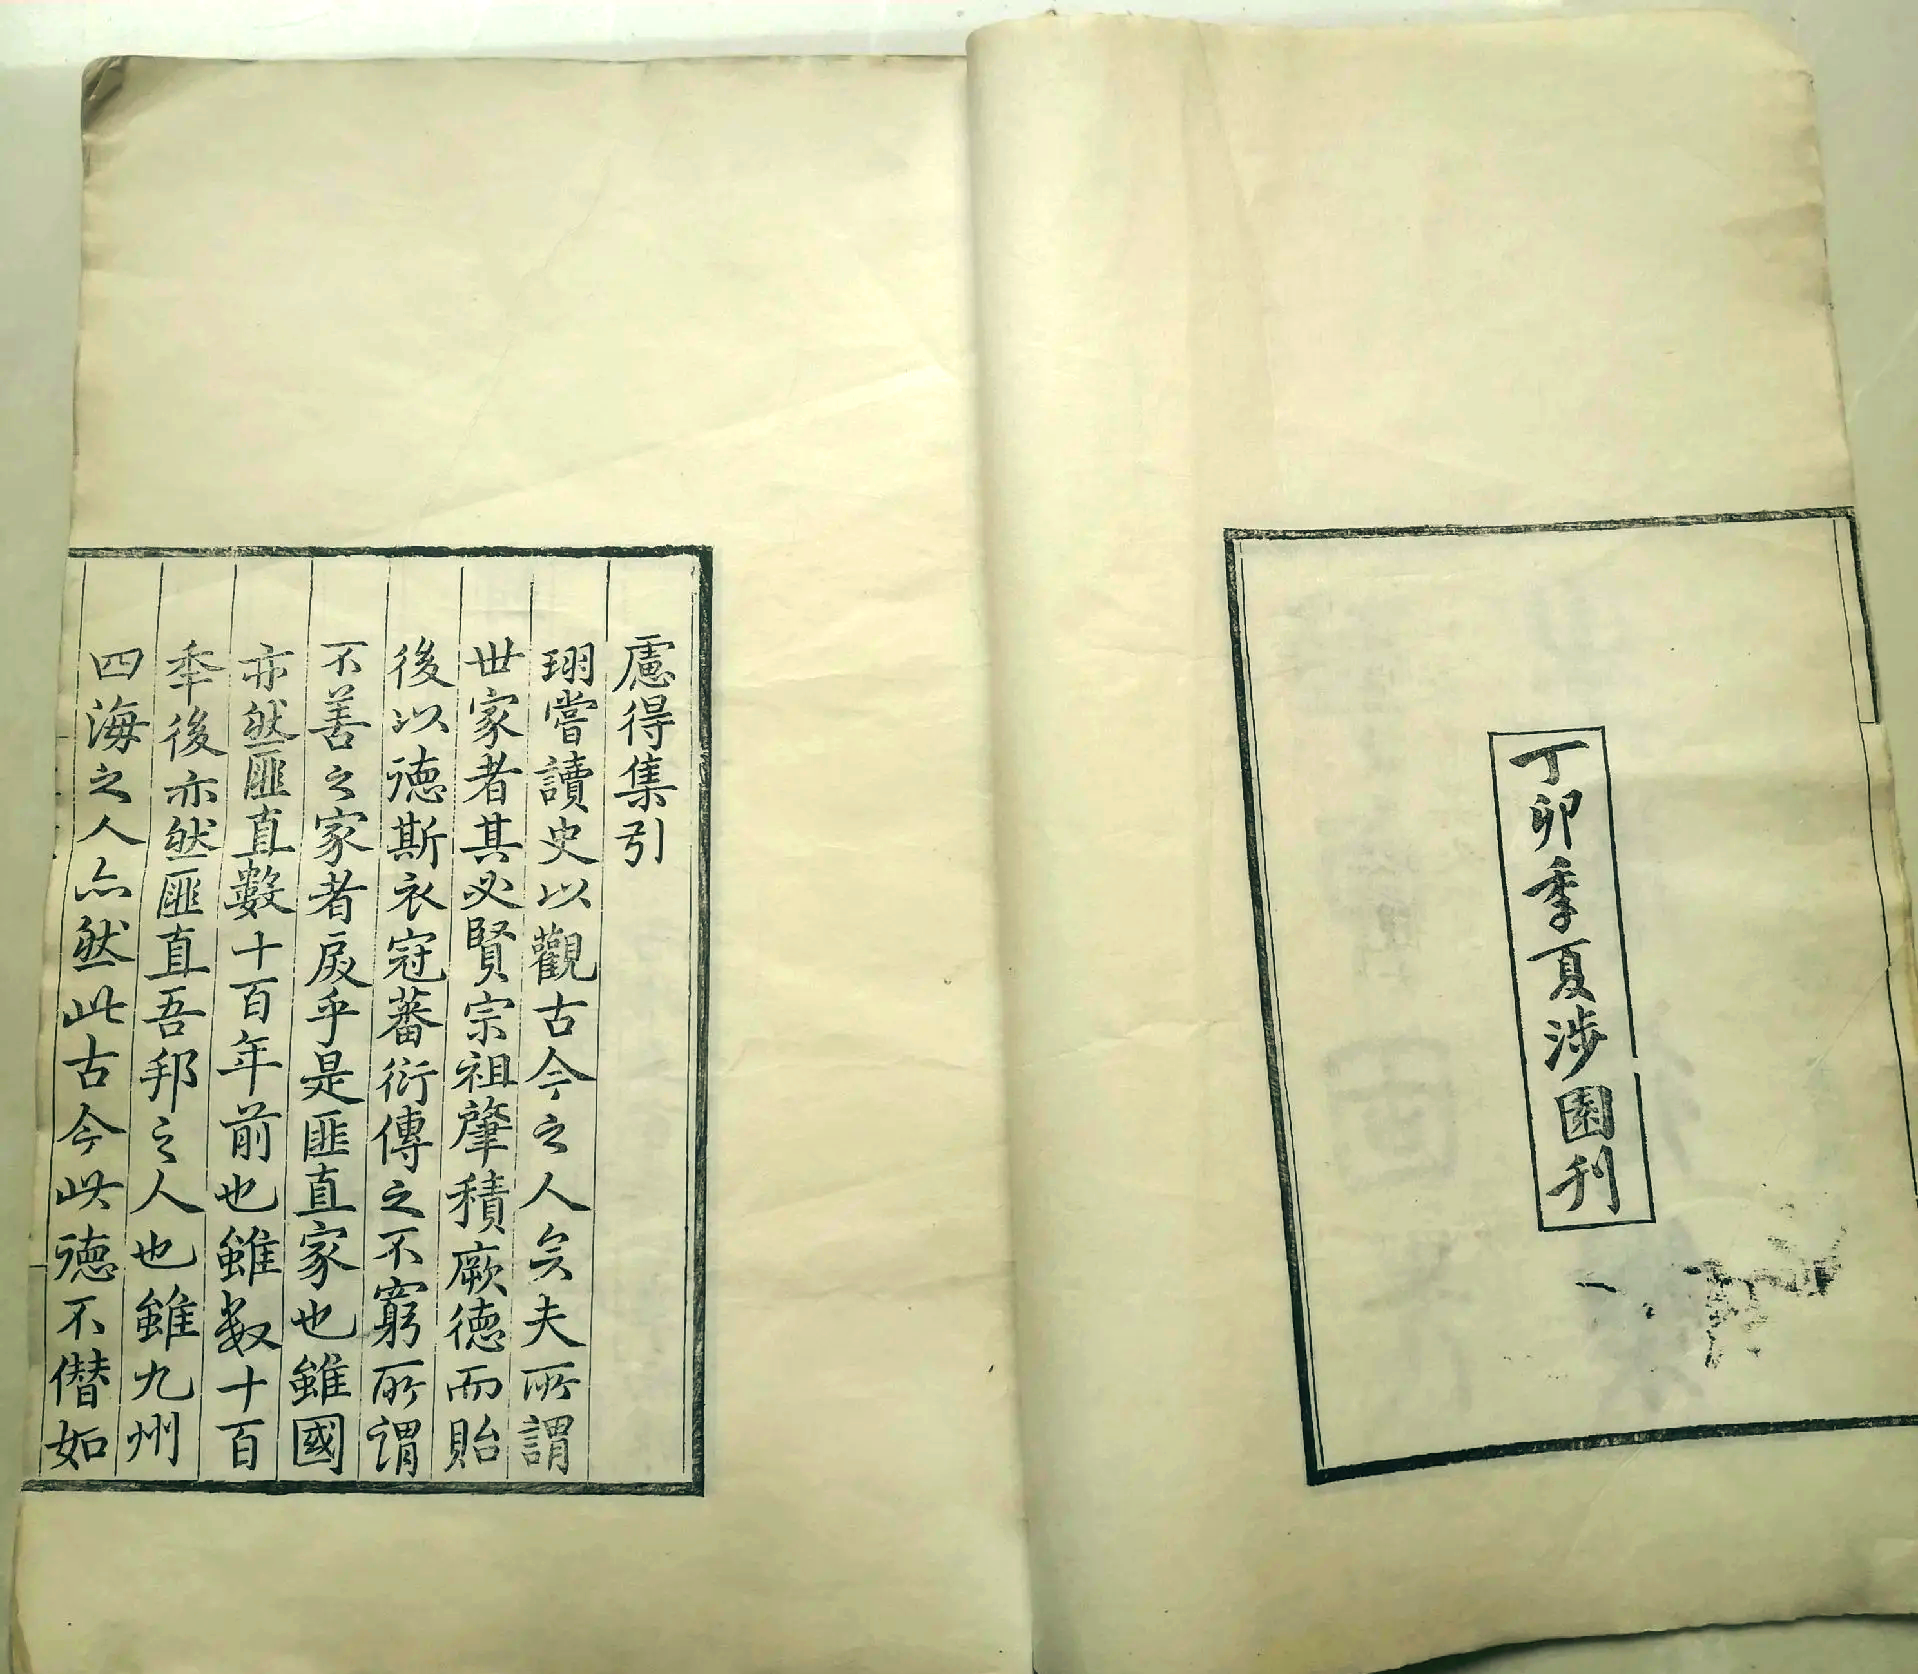 丁卯季夏涉園刊
慮得集引
珝嘗讀史以觀古今之人矣夫所謂
世家者其必賢宗祖肇積厥德而貽
後以德斯衣冠蕃衍傳之不窮所謂
不善之家者戾乎是匪直家也雖國
亦然匪直數十百年前也雖數十百
秊後亦然匪直吾邦之人也雖九州
四海之人亦然此古今此德不僣如